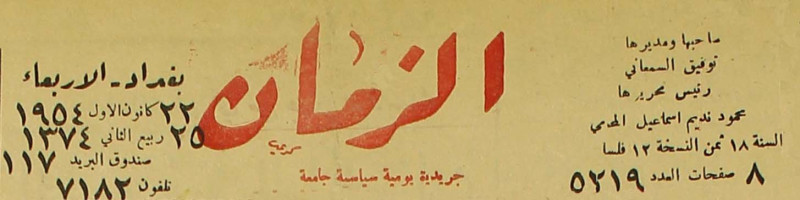 صاحبها ومديرها
توفيق السمعاني
رئيس تحريرها
محمود نديم اسماعيل المحامي
السنة ١٨ ثمن النسخة ١٢ فلسا
٨ صفحات العدد ٥٢١٩
الزمان
جريدية يومية سياسية جامعة
بغداد - الاربعاء
٢٢ كانون الاول ١٩٥٤
٢٥ ربيع الثاني ١٣٧٤
صندوق البريد ١١٧
تلفون ٧١٨٢